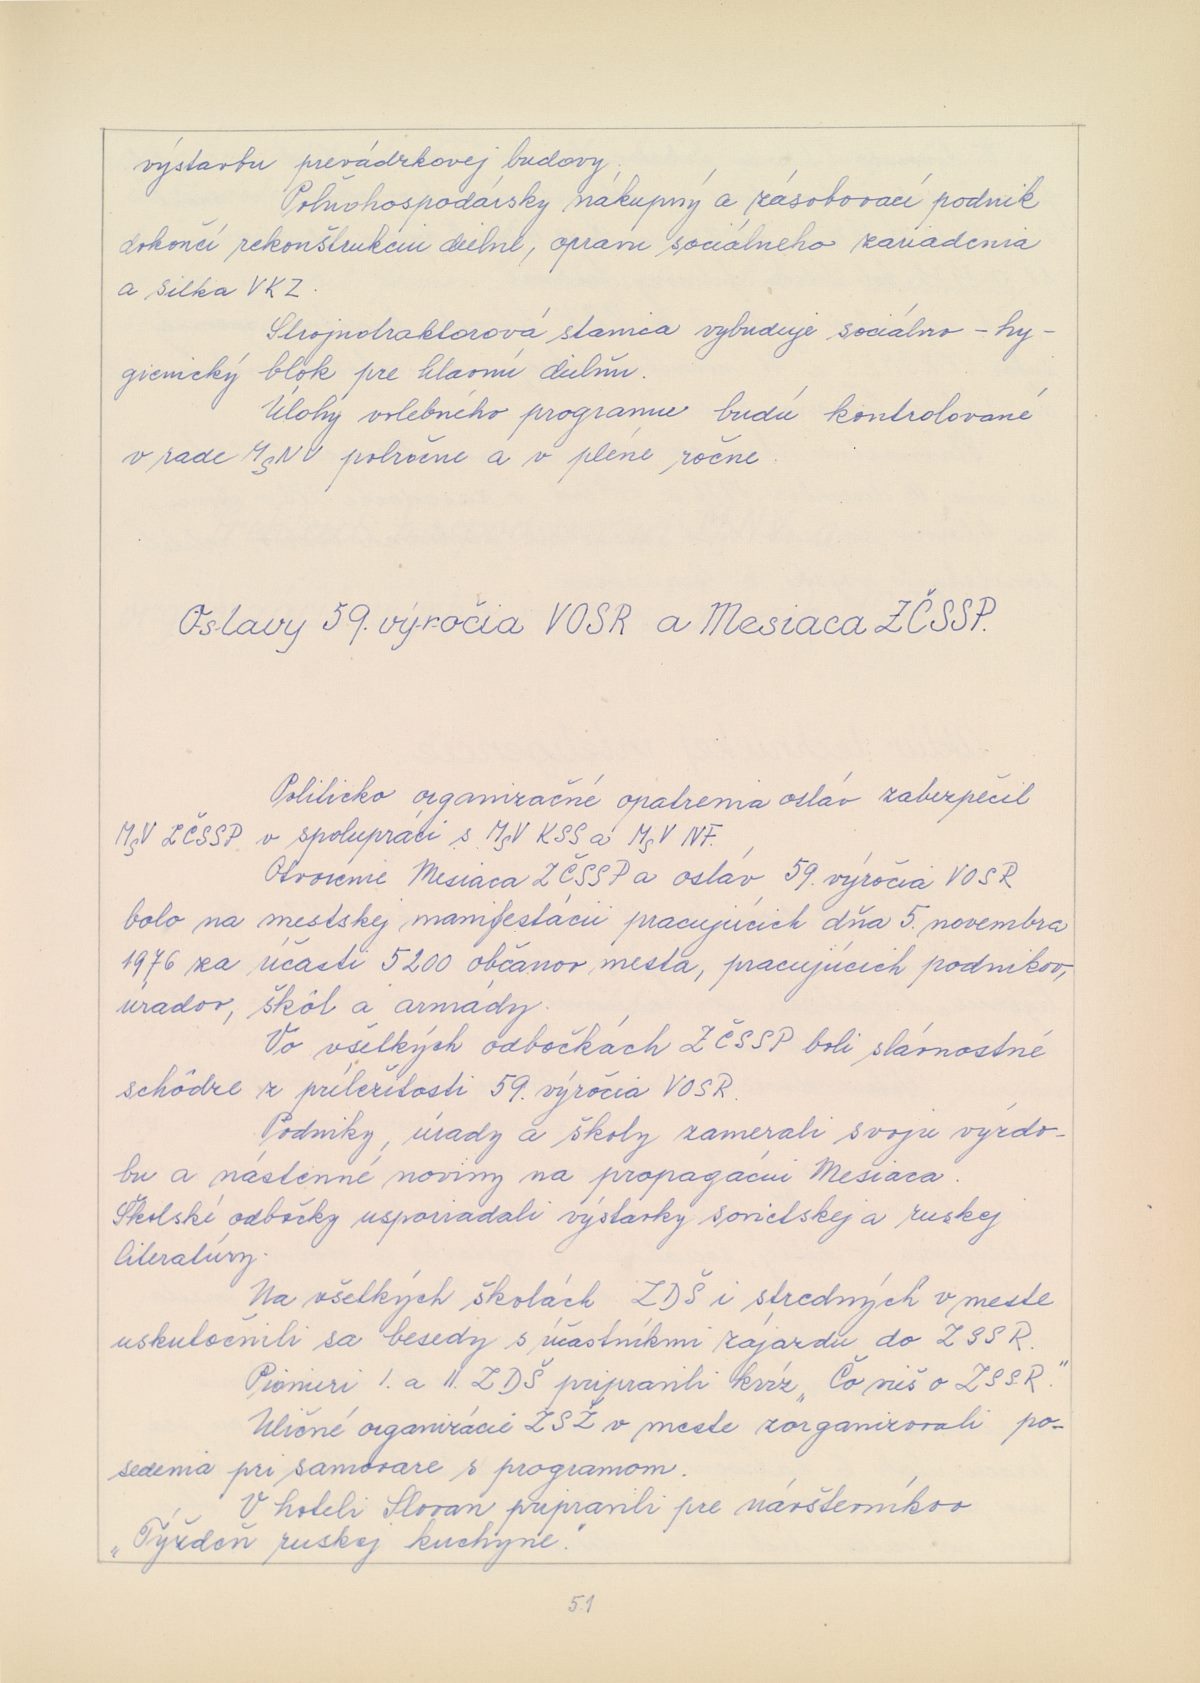 výstavbu prevádzkovej budovy.
Poľnohospodársky nákupný a zásobovací podnik
dokončí rekonštrukciu dielne, opravu sociálneho zariadenia
a silka VKZ.
Strojnotraktorová stanica vybuduje sociálno - hy-
gienický blok pre hlavnú dielňu.
Úlohy volebného programu budú kontrolované
v rade MsNV polročne a v pléne ročne.
Oslavy 59. výročia VOSR a Mesiaca ZČSSP.
Politicko organizačné opatrenia osláv zabezpečil
MsV ZČSSP v spolupráci s MsV KSS a MsV NF.
Otvorenie Mesiaca ZČSSP a osláv 59. výročia VOSR
bolo na mestskej manifestácii pracujúcich dňa 5. novembra
1976 za účasti 5200 občanov mesta, pracujúcich podnikov,
úradov, škôl a armády.
Vo všetkých odbočkách ZČSSP boli slávnostné
schôdze z príležitosti 59. výročia VOSR.
Podniky, úrady a školy zamerali svoju výzdo-
bu a nástenné noviny na propagáciu Mesiaca.
Školské odbočky usporiadali výstavky sovietskej a ruskej
literatúry.
Na všetkých školách ZDŠ i stredných v meste
uskutočnili sa besedy s účastníkmi zájazdu do ZSSR.
Pionieri I. a II. ZDŠ pripravili kvíz „Čo vieš o ZSSR."
Uličné organizácie ZSŽ v meste zorganizovali po-
sedenia pri samovare s programom.
V hoteli Slovan pripravili pre návštevníkov
„Týždeň ruskej kuchyne."
51